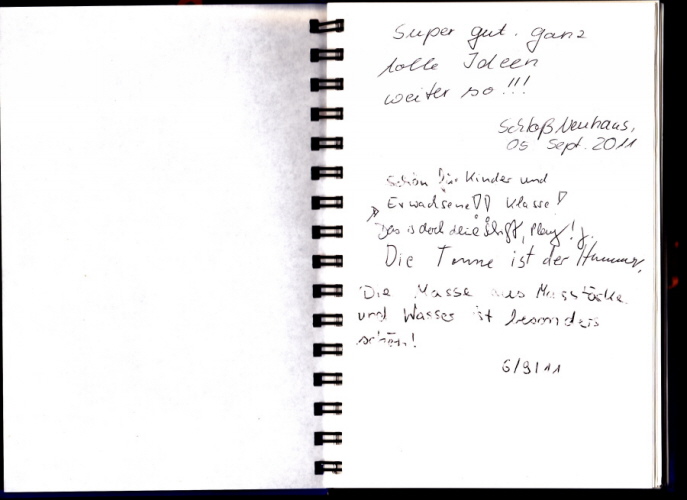 Super gut. ganz
tolle Ideen
weiter so!!!
Schloß Neuhaus,
05 Sept. 2011
Schön für Kinder und
Erwachsene!! Klasse!
Das is doch deine
Die Tonne ist der Hammer,
Die Masse aus
und Wasser ist besonders
schön!
6/9/11